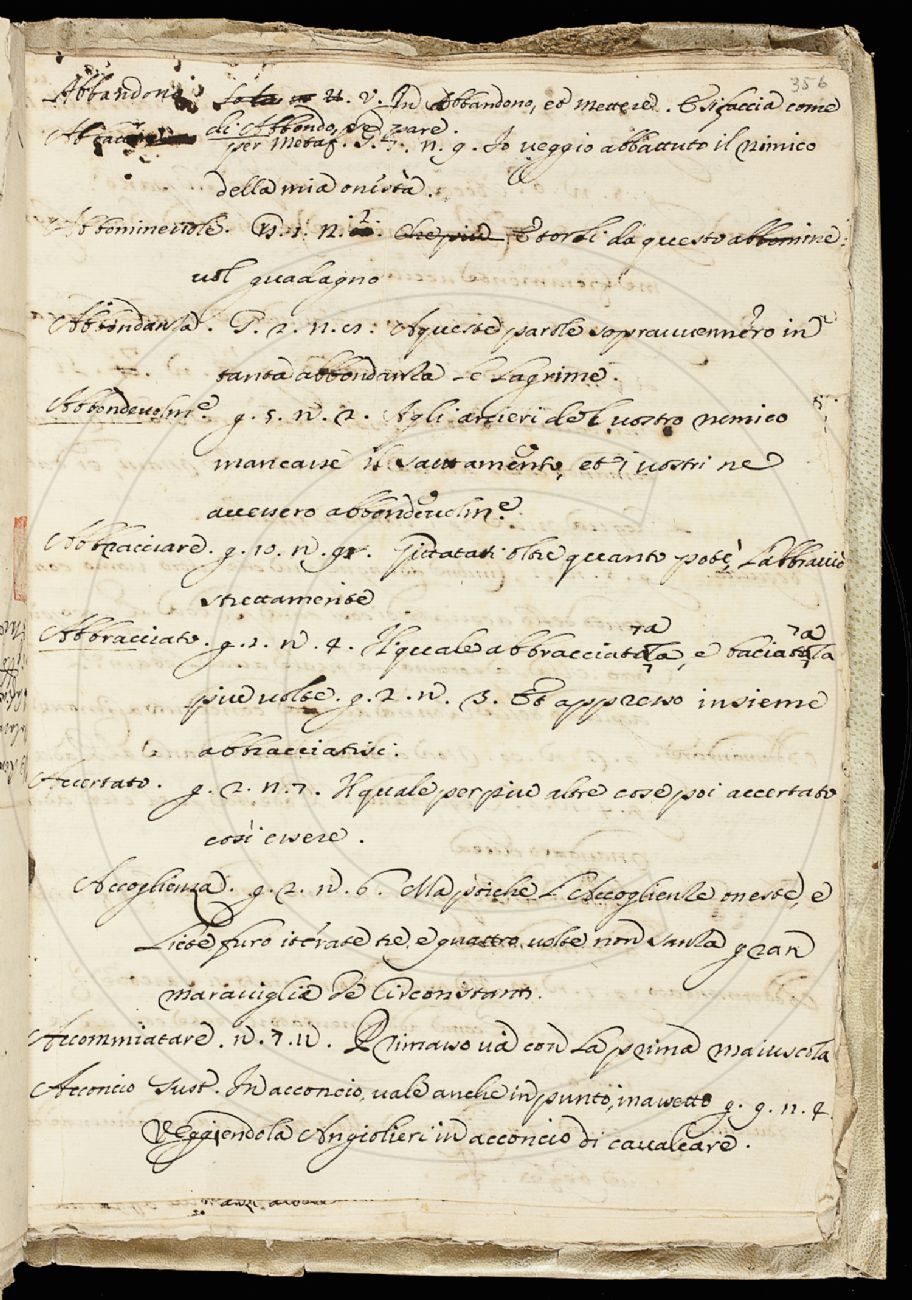 356
Abbandono . V. In Abbandono, et Mettere. E si faccia come
di Abbondo, se pare.
per Metaf. G. 7. n. 9. Io veggio abbattuto il nimico
della mia onistà.
Abbominevole. n. 2. Che più E torbi da questo abbomine:
vol guadagno
Abbondanza. G. 2. n. A queste parole sopravvennero in
tanta abbondanza le lagrime.
Abbondevolm.e g. 5. n. 2. Agli arcieri del vostro nemico
mancasse il saettamento, et i vostri ne
avessero abbondevolm.e
Abbracciare. g. 10. n. 9. oltre quanto potè, l'abbracciò
strettamente
Abbracciato. g. 2. n. 4. Il quale abbracciatala, e baciatala
piu volte. g. 2. n. 3. Et appresso insieme
abbracciatisi:
Accertato. g. 2. n. 7. Il quale per piu altre cose poi accertato
così essere.
Accoglienza. g. 2. n. 6. Ma poiche l'Accoglienze oneste, e
liete furo iterate tre, e quattro volte non sanza gran
maraviglia de Circonstanti.
Accommiatare. N. 7. N. Rimaso va con la prima maiuscola
Acconcio Sust. In acconcio, vale anche in punto, in assetto g. 9. n. 4.
Veggendola Angiolieri in acconcio di cavalcare.